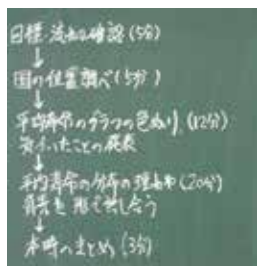 目標・流れの確認(5分)
↓
国の位置調べ(5分)
↓
平均寿命のグラフの色ぬり(12分)
気づいたことの発表
↓
平均寿命の分布の理由や(20分)
背景を 話し合う
↓
本時のまとめ(3分)